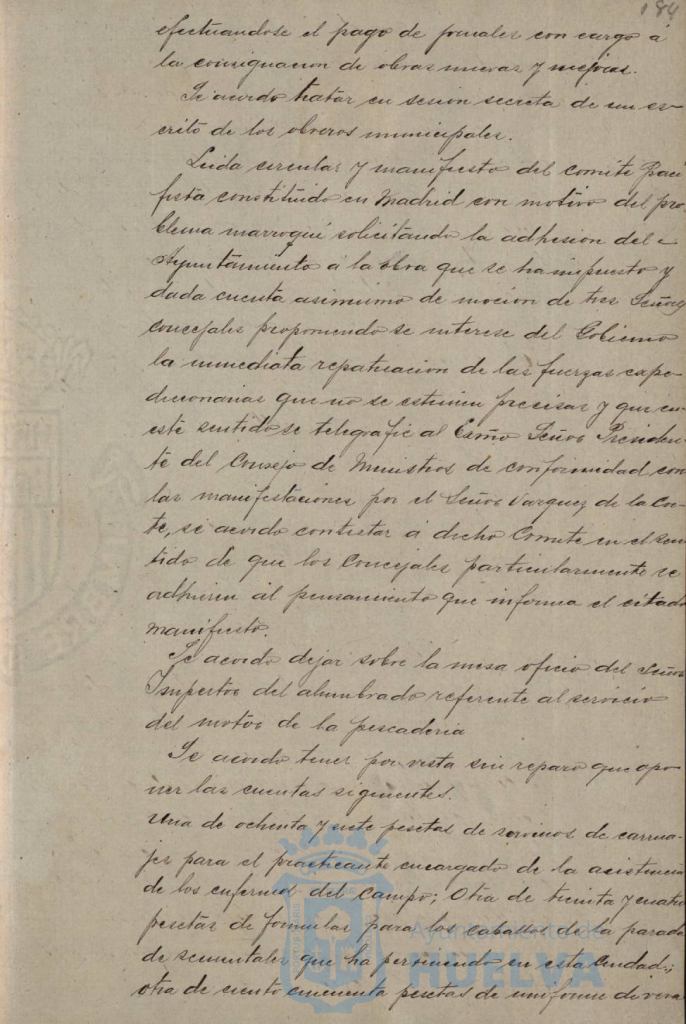 184
efectuandose el pago de jornales con cargo á
la consignacion de obras nuevas y mejoras.
Se acordo tratar en sesion secreta de un es-
crito de los obreros municipales.
Leida circular y manifiesto del comité Paci
fista constituido en Madrid con motivo del pro-
blema marroquí solicitando la adhesion del
Ayuntamiento á la obra que se ha impuesto y
dada cuenta asimismo de mocion de tres Señores
Concejales proponiendo se interese del Gobierno
la inmediata repatriacion de las fuerzas expe-
dicionarias que no se estimen precisas y que en
este sentido se telegrafie al Exmo Señor Presiden-
te del Consejo de Ministros de conformidad con
las manifestaciones por el Señor Vazquez de la Cor-
te, se acordo contestar á dicho Comite en el sen-
tido de que los Concejales particularmente se
adhieren al pensamiento que informa el citado
manifiesto.
Se acordo dejar sobre la mesa oficio del Señor
Inspector del alumbrado referente al servicio
del motor de la pescaderia
Se acordo tener por vista sin reparo que opo
ner las cuentas siguientes.
Una de ochenta y siete pesetas de servicios de carrua-
jes para el practicante encargado de la asistencia
de los enfermos del Campo; Otra de treinta y cuatro
pesetas de formulas para los caballos de la parada
de sementales que ha permanecido en esta Ciudad;
otra de ciento cincuenta pesetas de uniforme de vera
Ayuntamiento de
HUELVA